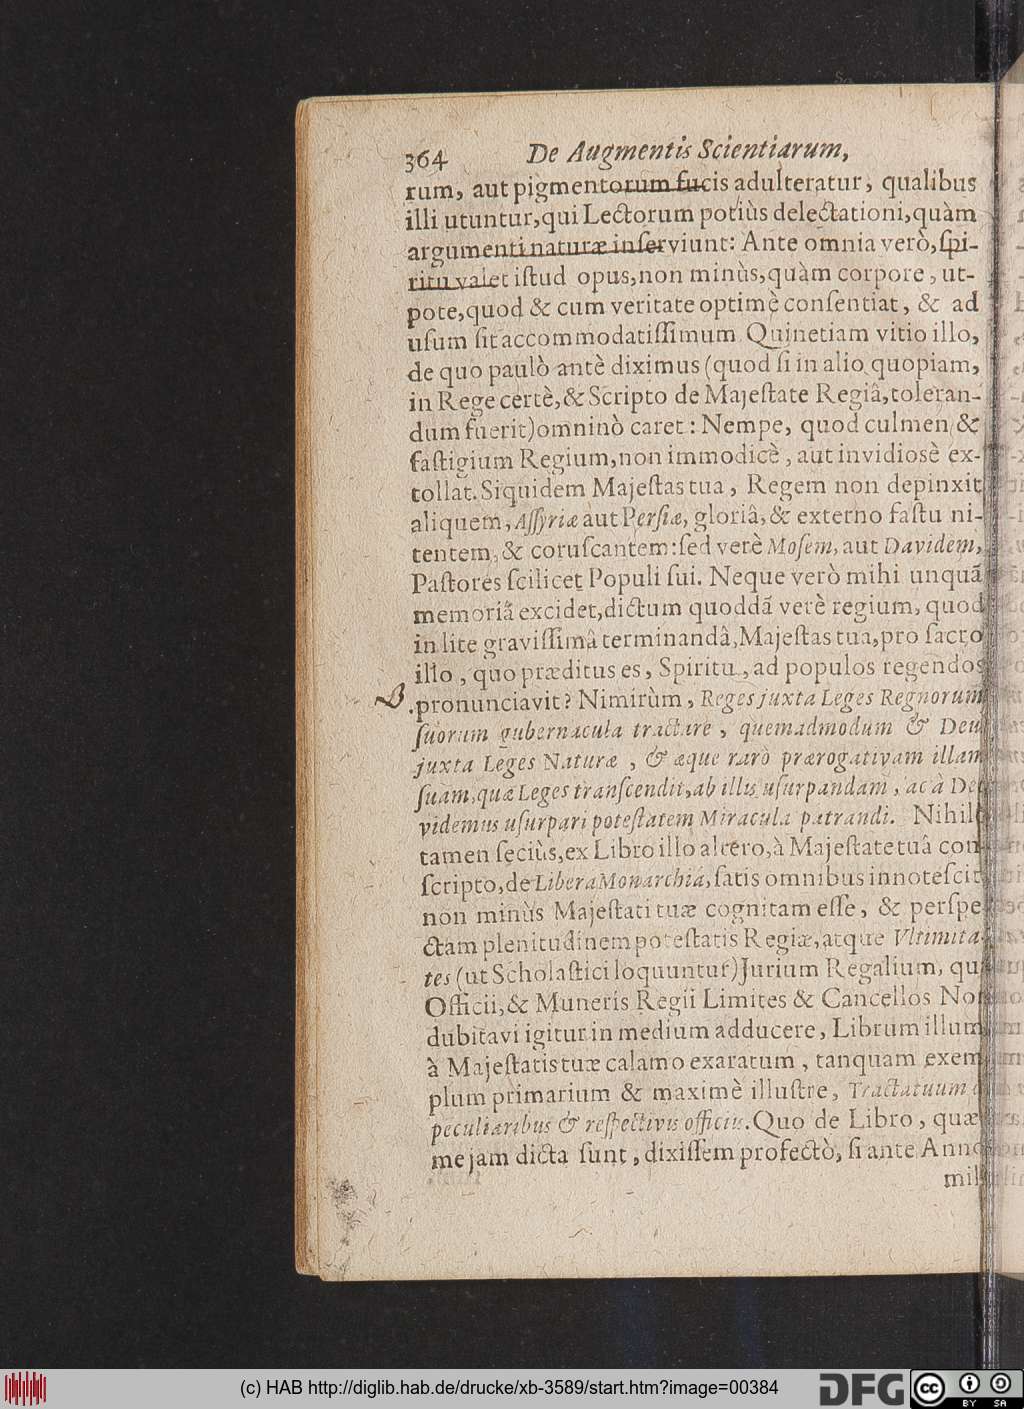 364 De Augmentis Scientiarum,
rum, aut pigmentorum fucis adulteratur, qualibus
illi utuntur, qui Lectorum potiùs delectationi, quàm
argumenti naturæ inſerviunt: Ante omnia verò, ſpi-
ritu valet iſtud opus, non minùs, quàm corpore, ut-
pote, quod & cum veritate optimè conſentiat, & ad
uſum ſit accommodatiſſimum. Quinetiam vitio illo,
de quo paulò antè diximus (quod ſi in alio quopiam,
in Rege certè, & Scripto de Majeſtate Regiâ, toleran-
dum fuerit) omninò caret: Nempe, quod culmen &
faſtigium Regium, non immodicè, aut invidiosè ex-
tollat. Siquidem Majeſtas tua, Regem non depinxit
aliquem, Aſſyriæ aut Perſiæ, gloriâ, & externo faſtu ni-
tentem, & coruſcantem: ſed verè Moſem, aut Davidem,
Paſtores ſcilicet Populi ſui. Neque verò mihi unquã
memoriã excidet, dictum quoddã verè regium, quod
in lite graviſſimâ terminandâ, Majeſtas tua, pro ſacro
illo, quo præditus es, Spiritu, ad populos regendos
B. pronunciavit? Nimirùm, Reges juxta Leges Regnorum
ſuorum gubernacula tractare, quemadmodum & Deu
juxta Leges Naturæ, & æque rarò prærogativam illam
ſuam, quæ Leges tranſcendit, ab illis uſurpandam, ac à De
videmus uſurpari poteſtatem Miracula patrandi. Nihil
tamen ſeciùs, ex Libro illo altero, à Majeſtate tuâ con
ſcripto, de Libera Monarchiâ, ſatis omnibus innoteſcit
non minùs Majeſtati tuæ cognitam eſſe, & perſpe
ctam plenitudinem poteſtatis Regiæ, atque Vltimita
tes (ut Scholaſtici loquuntur) Jurium Regalium, qu
Officii, & Muneris Regii Limites & Cancellos No
dubitavi igitur in medium adducere, Librum illum
à Majeſtatis tuæ calamo exaratum, tanquam exem
plum primarium & maximè illuſtre, Tractatuum
peculiaribus & reſpectivis officiis. Quo de Libro, quæ
me jam dicta ſunt, dixiſſem profectò, ſi ante Anno
mil
(c) HAB http://diglib.hab.de/drucke/xb-3589/start.htm?image=00384
DFG
cc BY SA